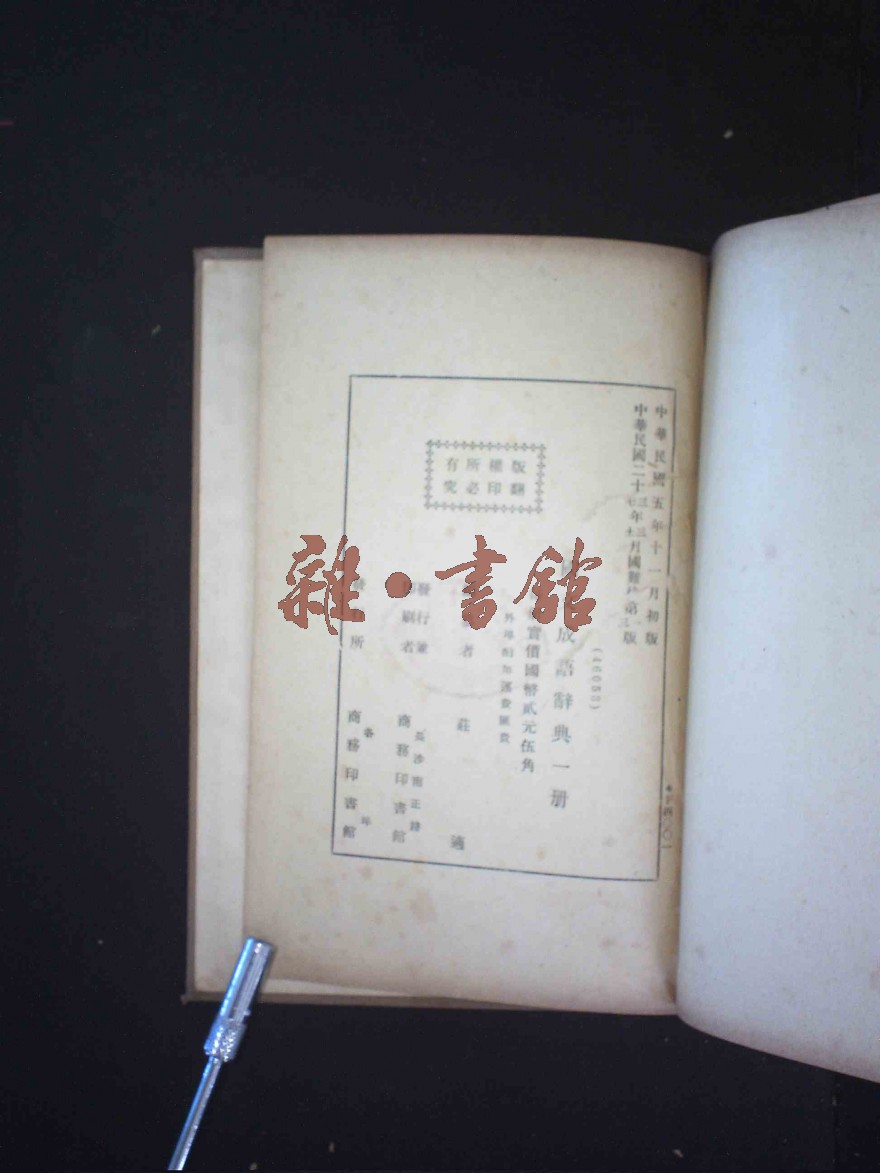 中華民國五年十一月初版
中華民國二十
年
月國難後第
版
(46053)
成語辭典一册
實價國幣貳元伍角
外埠酌加運費匯費
版權所有
翻印必究
者 莊適
發行兼
印刷者
長沙南正路
商務印書館
發行所
各埠
商務印書館
雜·書館